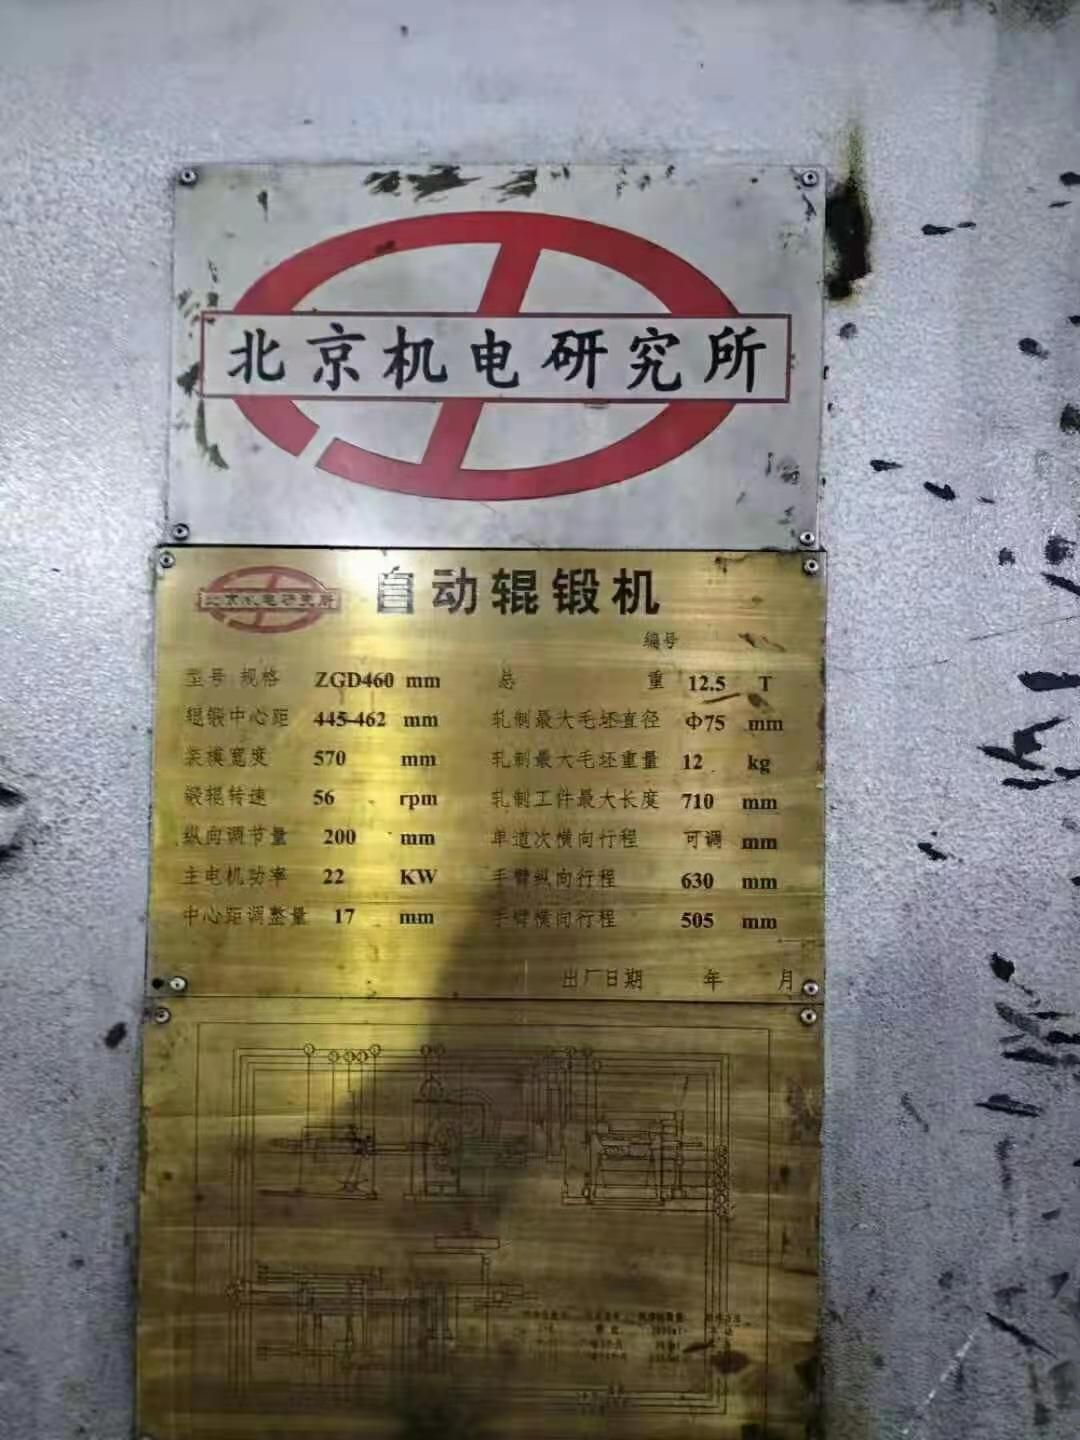 北京机电研究所
北京机电研究所 自动辊锻机
编号
型号 规格 ZGD460 mm 总 重 12.5 T
辊锻中心距 445-462 mm 轧制最大毛坯直径 Φ75 mm
装模宽度 570 mm 轧制最大毛坯重量 12 kg
锻辊转速 56 rpm 轧制工件最大长度 710 mm
纵向调节量 200 mm 单道次横向行程 可调 mm
主电机功率 22 KW 手臂纵向行程 630 mm
中心距调整量 17 mm 手臂横向行程 505 mm
出厂日期 年 月